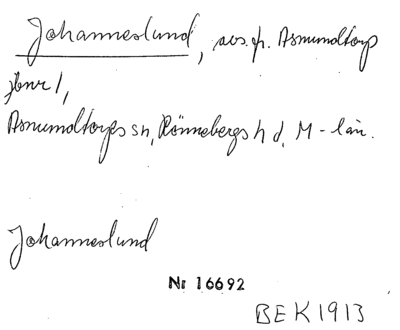 Johanneslund, avs. fr. Asmundtorp
jbnr 1,
Asmundtorps sn, Rönnebergs hd, M-län.
Johanneslund
Nr 16692
BEK 1913